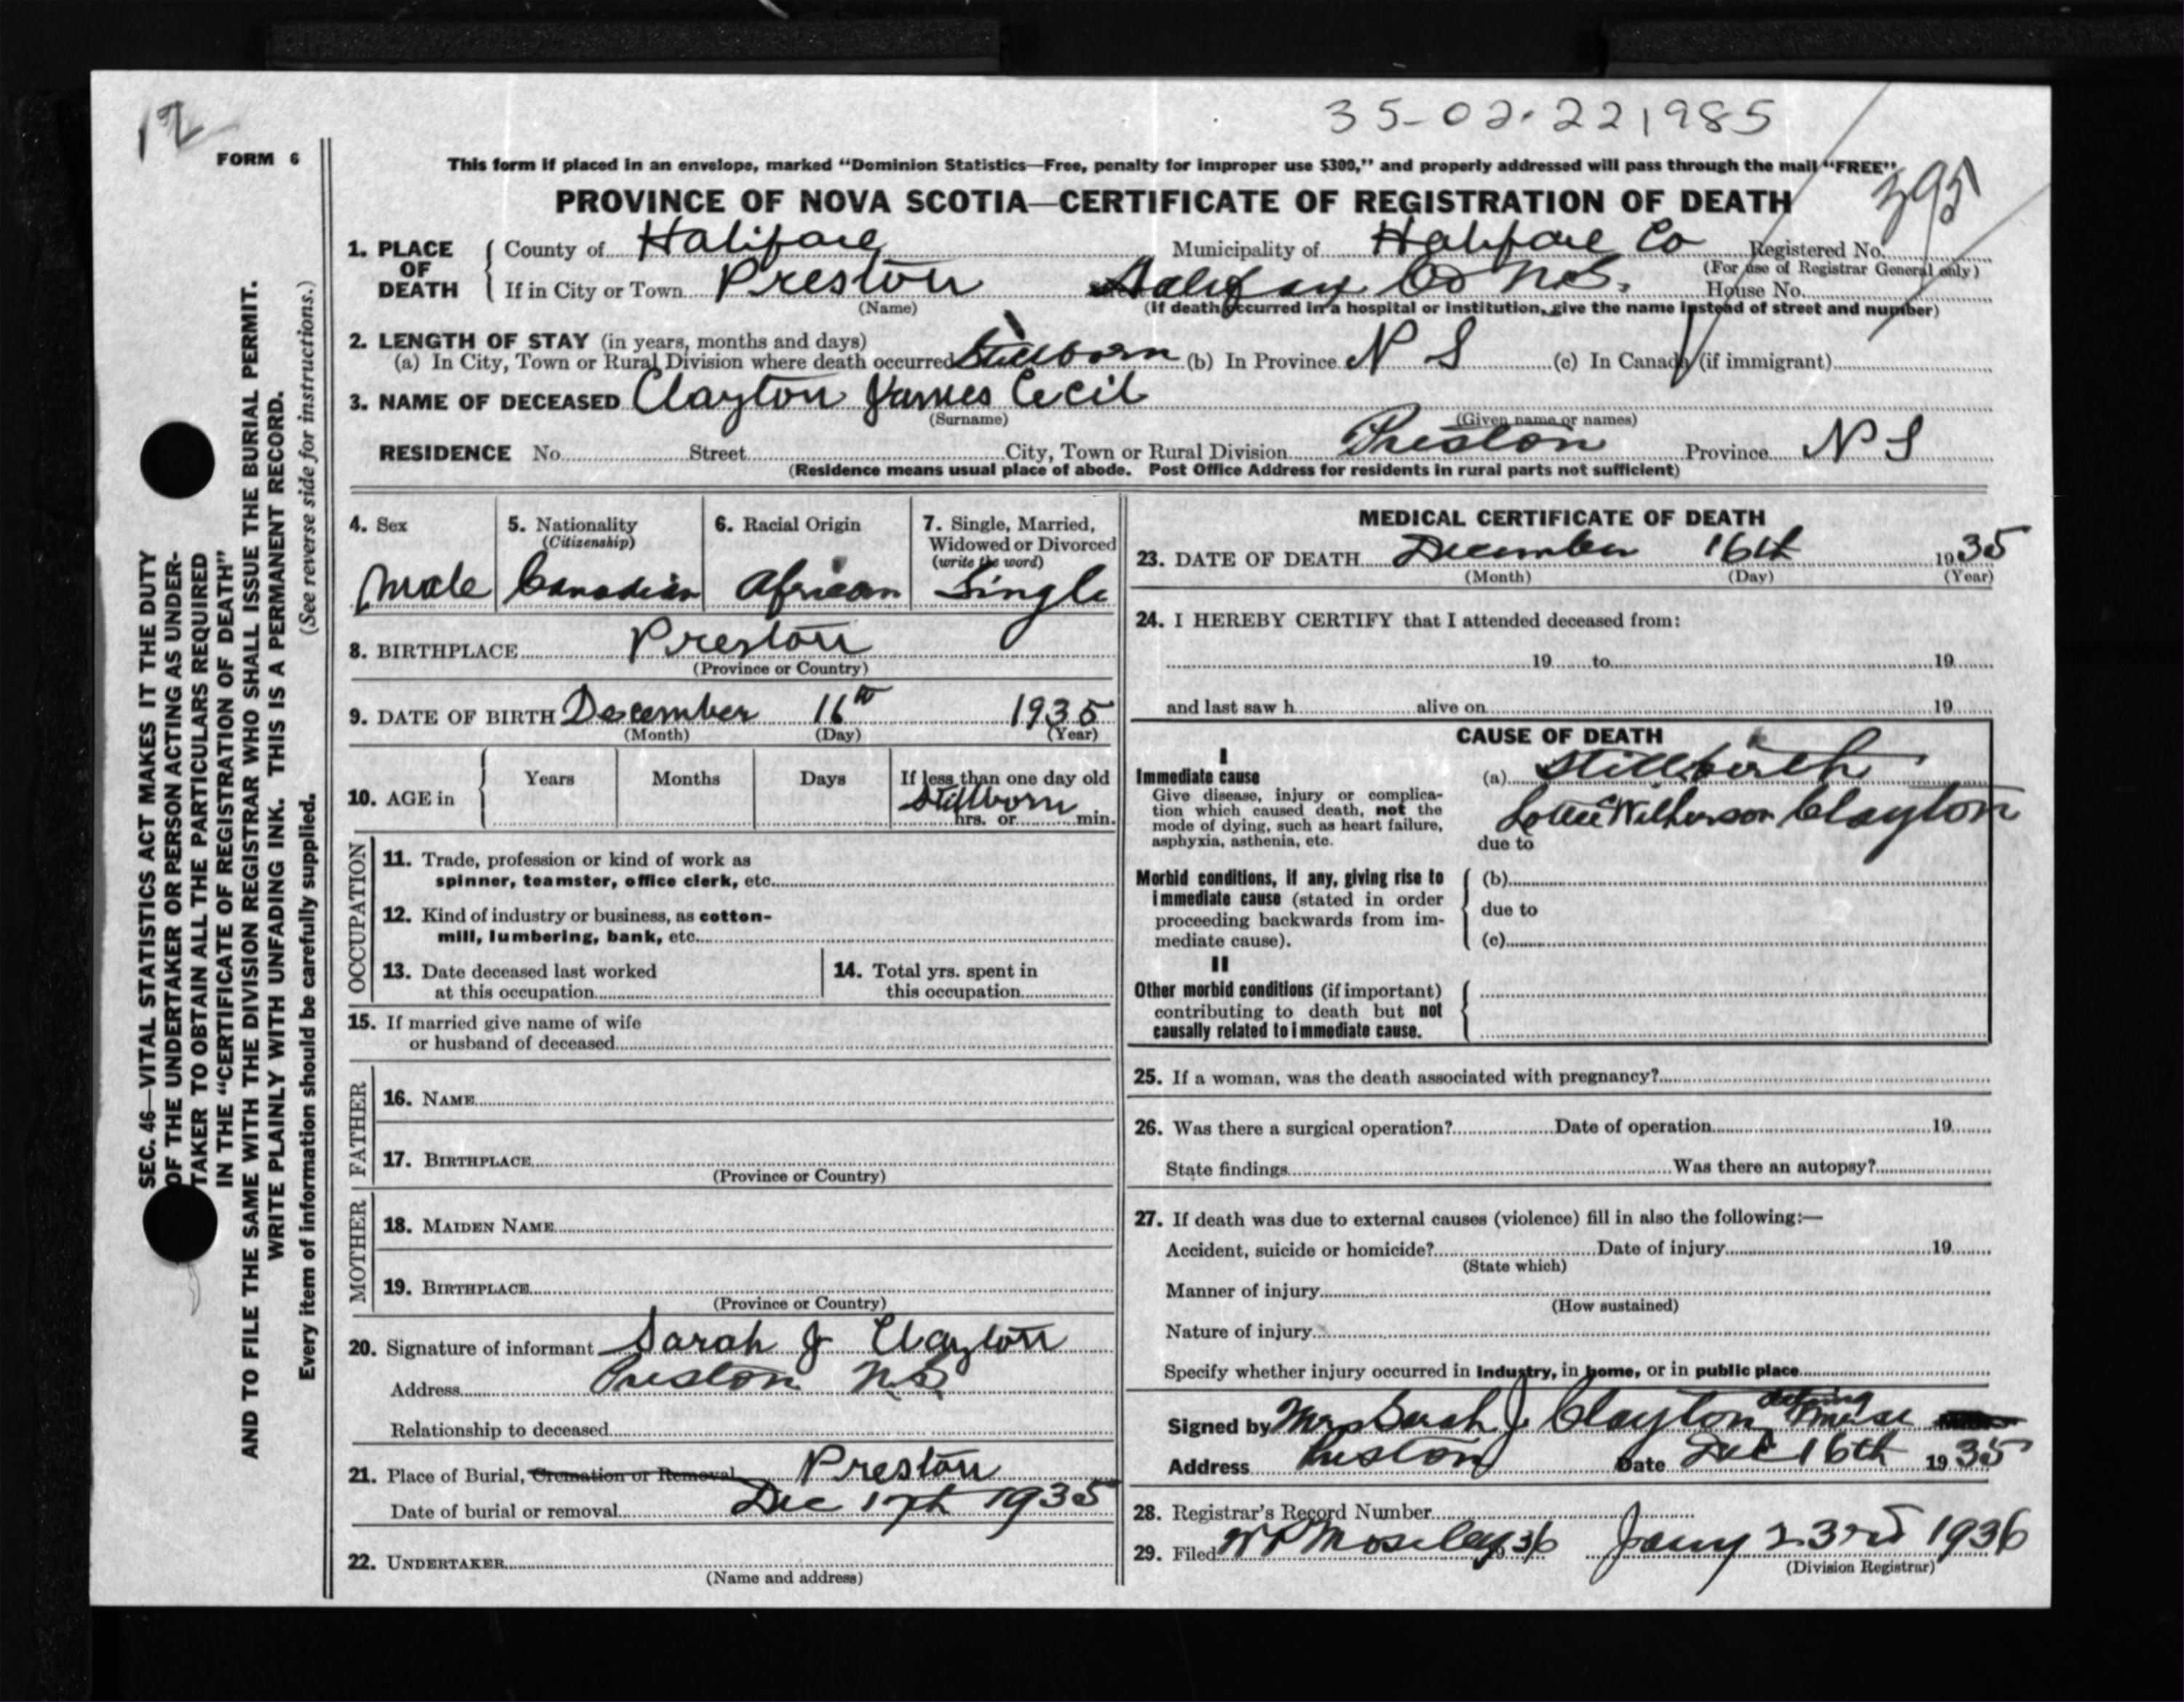 12
35-02-221985
FORM 6
This form if placed in an envelope, marked “Dominion Statistics—Free, penalty for improper use $300,” and properly addressed will pass through the mail “FREE”
395
PROVINCE OF NOVA SCOTIA—CERTIFICATE OF REGISTRATION OF DEATH
1. PLACE OF DEATH { County of Halifax Municipality of Halifax Co Registered No.
(For use of Registrar General only)
If in City or Town Preston Halifax Co N.S. House No.
(Name) (If death occurred in a hospital or institution, give the name instead of street and number)
2. LENGTH OF STAY (in years, months and days)
(a) In City, Town or Rural Division where death occurred Stillborn (b) In Province N S (c) In Canada (if immigrant)
3. NAME OF DECEASED Clayton James Cecil
(Surname) (Given name or names)
RESIDENCE No. Street City, Town or Rural Division Preston Province N S
(Residence means usual place of abode. Post Office Address for residents in rural parts not sufficient)
4. Sex
Male
5. Nationality
(Citizenship)
Canadian
6. Racial Origin
African
7. Single, Married,
Widowed or Divorced
(write the word)
Single
8. BIRTHPLACE Preston
(Province or Country)
9. DATE OF BIRTH December 16th 1935
(Month) (Day) (Year)
10. AGE in { Years Months Days If less than one day old
Stillborn
hrs. or min.
OCCUPATION
11. Trade, profession or kind of work as
spinner, teamster, office clerk, etc.
12. Kind of industry or business, as cotton-
mill, lumbering, bank, etc.
13. Date deceased last worked
at this occupation
14. Total yrs. spent in
this occupation
15. If married give name of wife
or husband of deceased
FATHER
16. NAME
17. BIRTHPLACE
(Province or Country)
MOTHER
18. MAIDEN NAME
19. BIRTHPLACE
(Province or Country)
20. Signature of informant Sarah J Clayton
Address Preston N.S
Relationship to deceased
21. Place of Burial, Cremation or Removal Preston
Date of burial or removal Dec 17th 1935
22. UNDERTAKER
(Name and address)
MEDICAL CERTIFICATE OF DEATH
23. DATE OF DEATH December 16th 1935
(Month) (Day) (Year)
24. I HEREBY CERTIFY that I attended deceased from:
19 to 19
and last saw h alive on 19
CAUSE OF DEATH
I
Immediate cause
Give disease, injury or complica-
tion which caused death, not the
mode of dying, such as heart failure,
asphyxia, asthenia, etc.
(a) Stillbirth
Clayton
due to
Morbid conditions, if any, giving rise to
immediate cause (stated in order
proceeding backwards from im-
mediate cause).
(b)
due to
(c)
II
Other morbid conditions (if important)
contributing to death but not
causally related to immediate cause.
25. If a woman, was the death associated with pregnancy?
26. Was there a surgical operation? Date of operation 19
State findings Was there an autopsy?
27. If death was due to external causes (violence) fill in also the following:—
Accident, suicide or homicide? Date of injury 19
(State which)
Manner of injury
(How sustained)
Nature of injury
Specify whether injury occurred in industry, in home, or in public place
Signed by Mrs Sarah J Clayton nurse
Address Preston Date Dec 16th 1935
28. Registrar's Record Number
29. Filed W Moseley 36 Jany 23rd 1936
(Division Registrar)
SEC. 46—VITAL STATISTICS ACT MAKES IT THE DUTY
OF THE UNDERTAKER OR PERSON ACTING AS UNDER-
TAKER TO OBTAIN ALL THE PARTICULARS REQUIRED
IN THE “CERTIFICATE OF REGISTRATION OF DEATH”
AND TO FILE THE SAME WITH THE DIVISION REGISTRAR WHO SHALL ISSUE THE BURIAL PERMIT.
WRITE PLAINLY WITH UNFADING INK. THIS IS A PERMANENT RECORD.
Every item of information should be carefully supplied. (See reverse side for instructions.)